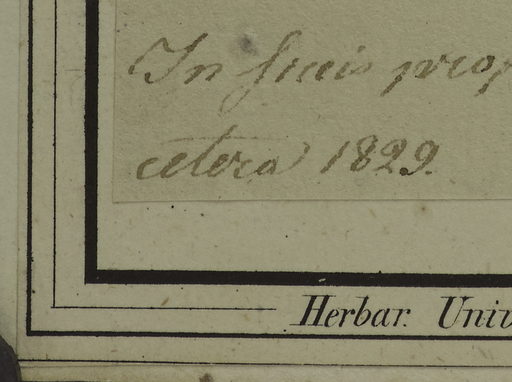 In succis prop
cetera 1829.
Herbar. Univ